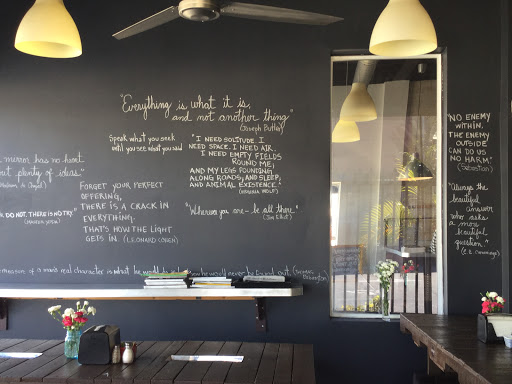 "Everything is what it is,
and not another thing"
(Joseph Butler)
Speak what you seek
until you see what you said
"I NEED SOLITUDE. I
NEED SPACE. I NEED AIR.
I NEED EMPTY FIELDS
ROUND ME;
AND MY LEGS POUNDING
ALONG ROADS; AND SLEEP;
AND ANIMAL EXISTENCE."
(VIRGINIA WOLF)
mirror has no heart
but plenty of ideas."
FORGET YOUR PERFECT
OFFERING,
THERE IS A CRACK IN
EVERYTHING.
THAT'S HOW THE LIGHT
GETS IN (LEONARD COHEN)
DO NOT. THERE IS NO TRY."
(MASTER YODA)
"Wherever you are - be all there"
(Jim Elliot)
of a man's real character is what he would do he would never be found out.
"NO ENEMY
WITHIN,
THE ENEMY
OUTSIDE
CAN DO US
NO HARM."
"Always the
beautiful
answer
who asks
a more
beautiful
question."
(E.E. Cummings)